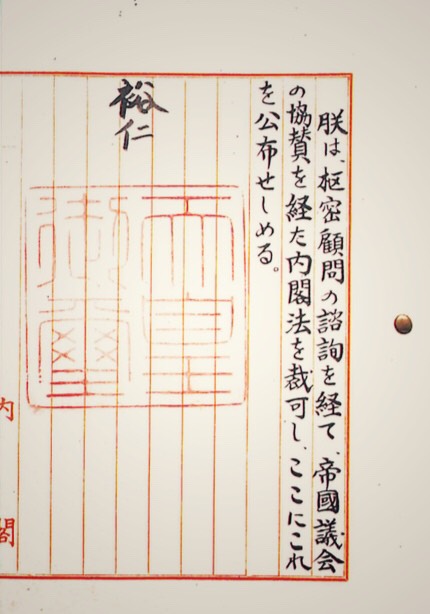 朕は、枢密顧問の諮詢を経て、帝國議会
の協賛を経た内閣法を裁可し、ここにこれ
を公布せしめる。
裕仁
天皇
御璽
内閣